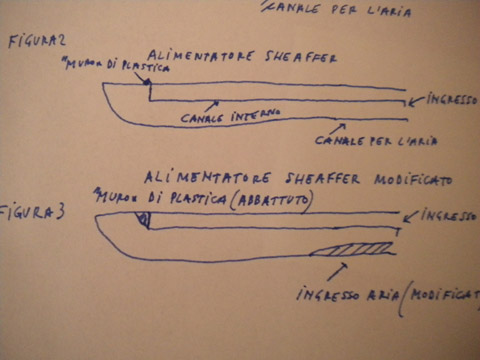 CANALE PER L'ARIA
FIGURA 2
ALIMENTATORE SHEAFFER
"MURO" DI PLASTICA
INGRESSO
CANALE INTERNO
CANALE PER L'ARIA
ALIMENTATORE SHEAFFER MODIFICATO
"MURO" DI PLASTICA (ABBATTUTO)
FIGURA 3
INGRESSO
INGRESSO ARIA (MODIFICAT